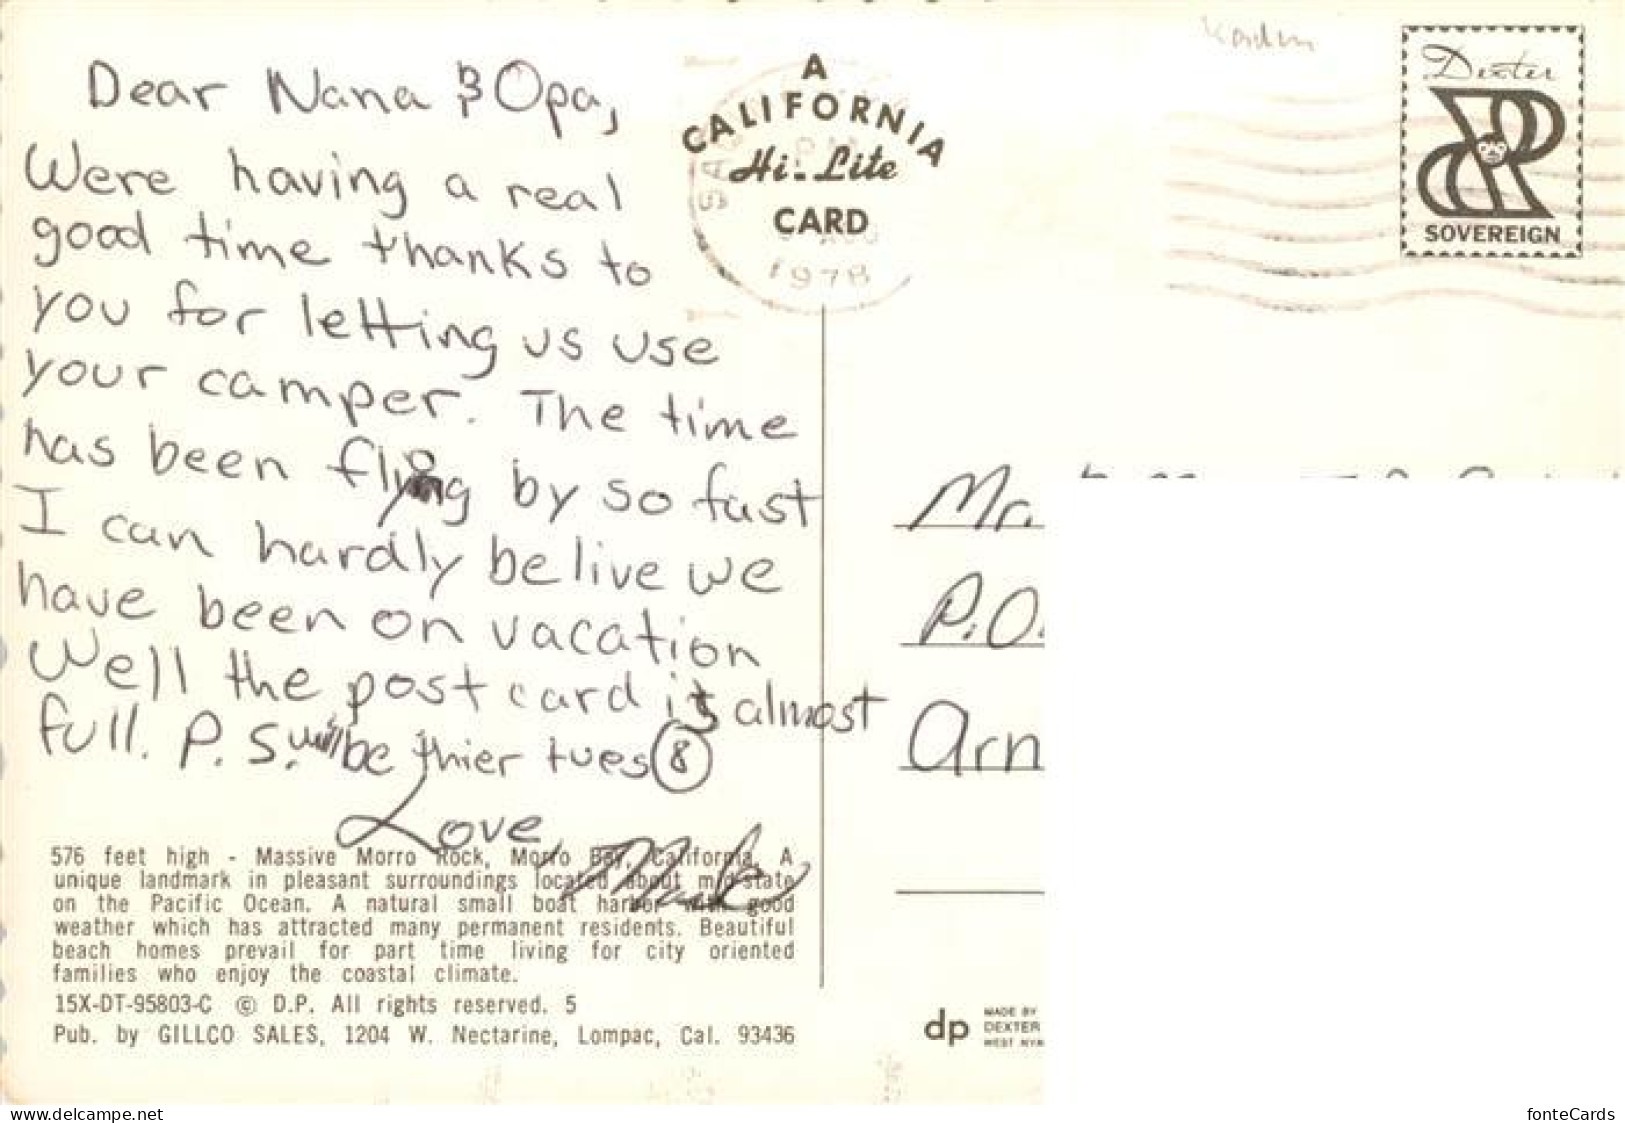 Dear Nana & Opa,
Were having a real
good time thanks to
you for letting us use
your camper. The time
has been flying by so fast
I can hardly belive we
have been on vacation
Well the post card is almost
full. P.S. will be thier tues 8
Love,
A
CALIFORNIA
Hi-Lite
CARD
1978
Dexter
SOVEREIGN
Mr.
P.O.
Arn
576 feet high - Massive Morro Rock, Morro Bay, California. A
unique landmark in pleasant surroundings located about mid-state
on the Pacific Ocean. A natural small boat harbor with good
weather which has attracted many permanent residents. Beautiful
beach homes prevail for part time living for city oriented
families who enjoy the coastal climate.
15X-DT-95803-C © D.P. All rights reserved. 5
Pub. by GILLCO SALES, 1204 W. Nectarine, Lompac, Cal. 93436
dp
MADE BY
DEXTER
WEST NYA
www.delcampe.net
fonteCards